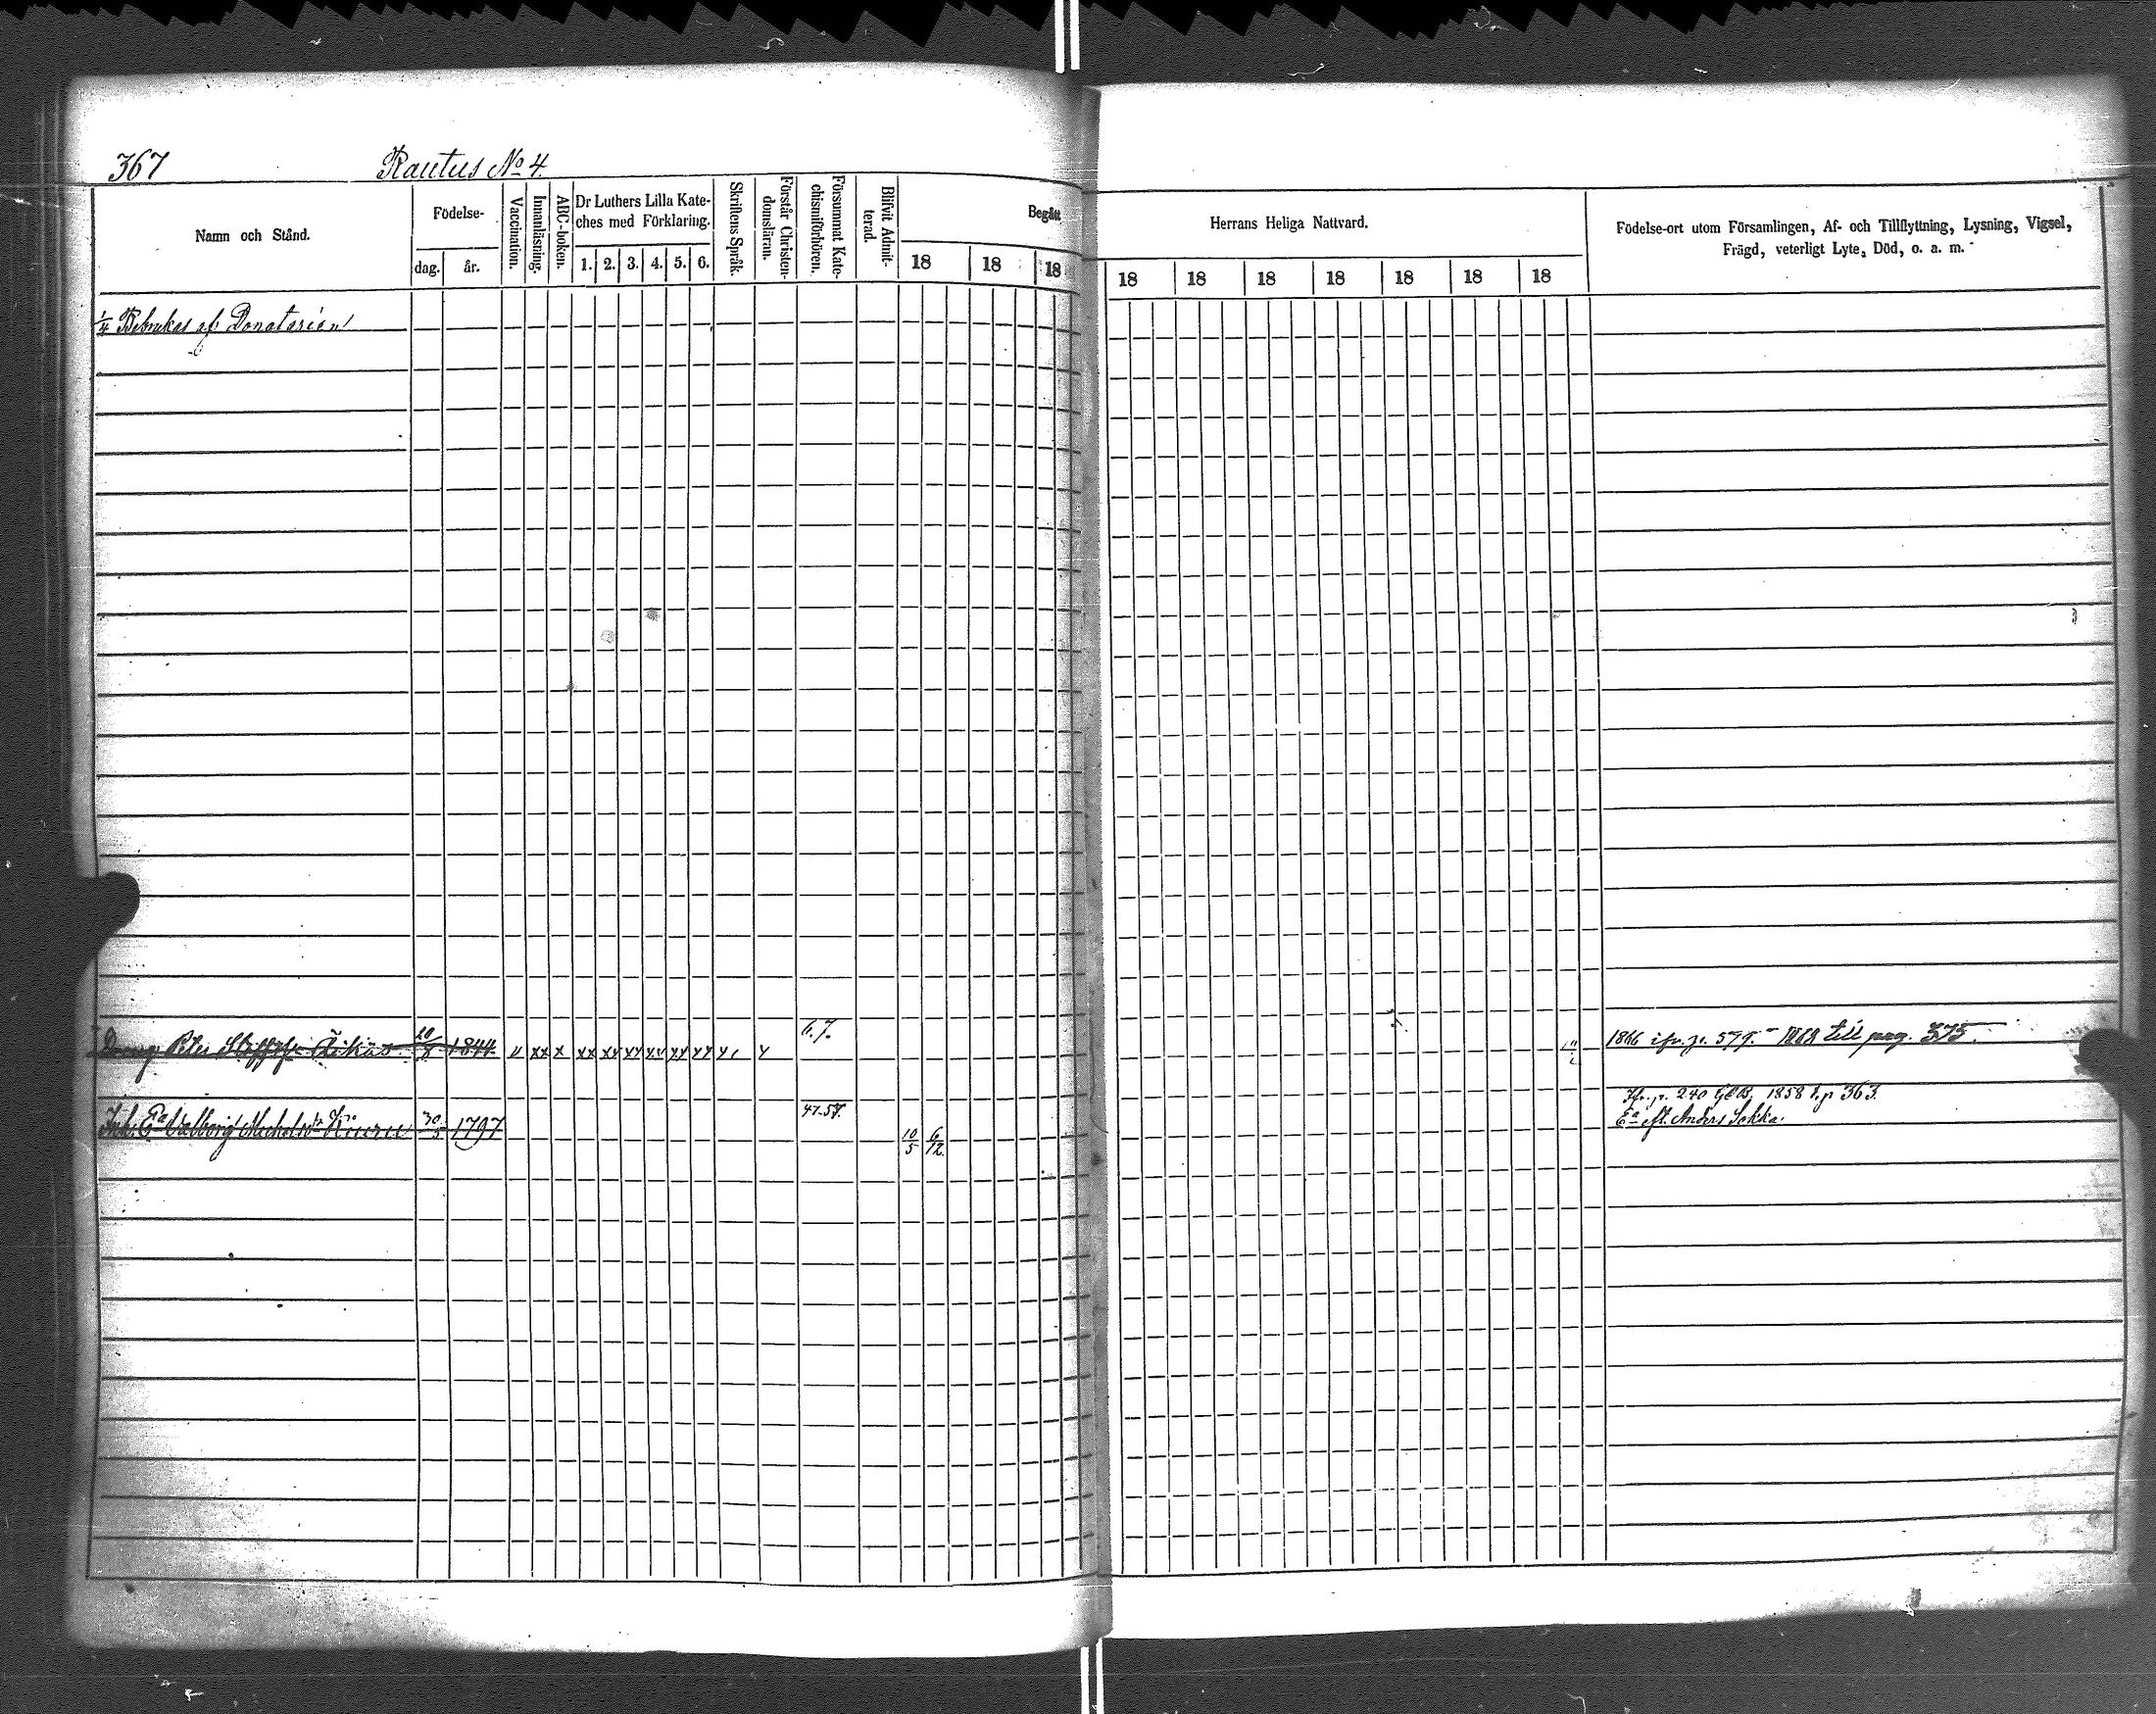 367 Rautus No 4
Namn och Stånd.
Födelse-
dag. år.
Vaccination.
Innanläsning.
ABC-boken.
Dr Luthers Lilla Kate-
ches med Förklaring.
1. 2. 3. 4. 5. 6.
Skriftens Språk.
Förstår Christen-
domsläran.
Försummat Kate-
chismiförhören.
Blifvit Admit-
terad.
Begått
18 18 18
Herrans Heliga Nattvard.
18 18 18 18 18 18 18
Födelse-ort utom Församlingen, Af- och Tillflyttning, Lysning, Vigsel,
Frägd, veterligt Lyte, Död, o. a. m.
1/4 Bebrukas af Donatarien
6.7.
Dräng Peter 1844 x xx x xx xx xx xx xx xx 1866 ifr. p. 579. - 1868 till pag. 375.
47-58. Ifr. p. 240 1858 p 363.
Inh. Ea Valborg Michelsdr 30/5 1797 10/5 6/12 Ea eft. Anders Sokka.